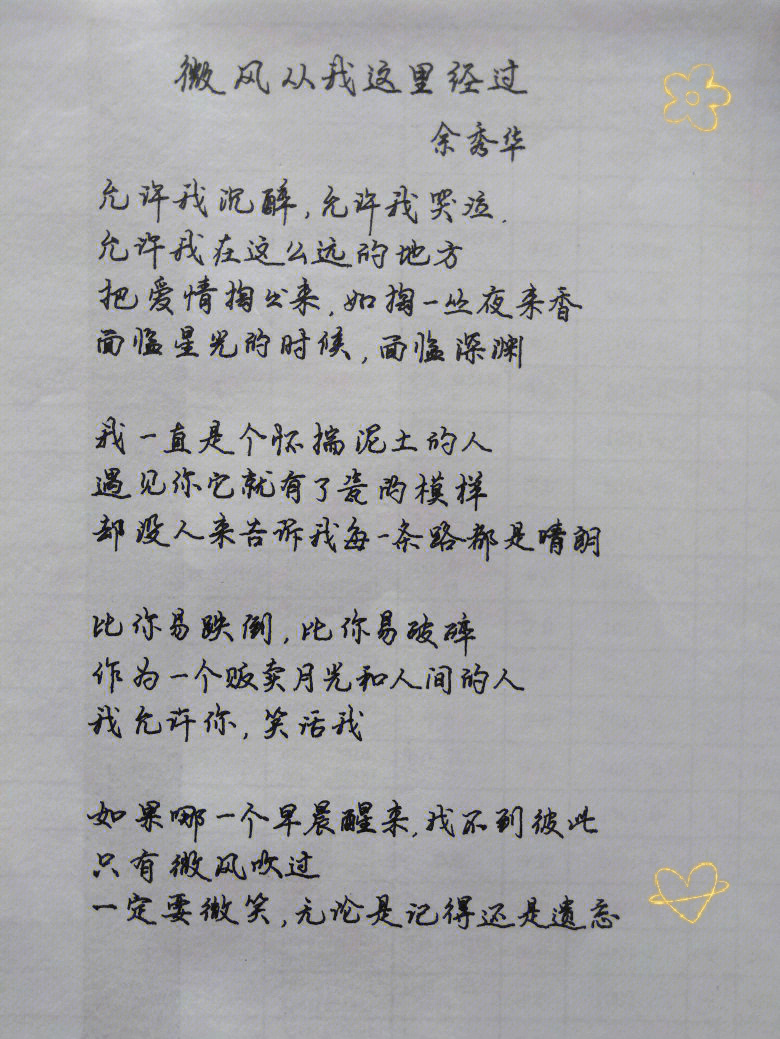 微风从我这里经过
余秀华
允许我沉醉,允许我哭泣.
允许我在这么远的地方
把爱情掏出来,如掏一丛夜来香
面临星光的时候,面临深渊
我一直是个怀揣泥土的人
遇见你它就有了瓷的模样
却没人来告诉我每一条路都是晴朗
比你易跌倒,比你易破碎
作为一个贩卖月光和人间的人
我允许你,笑话我
如果哪一个早晨醒来,找不到彼此
只有微风吹过
一定要微笑,无论是记得还是遗忘